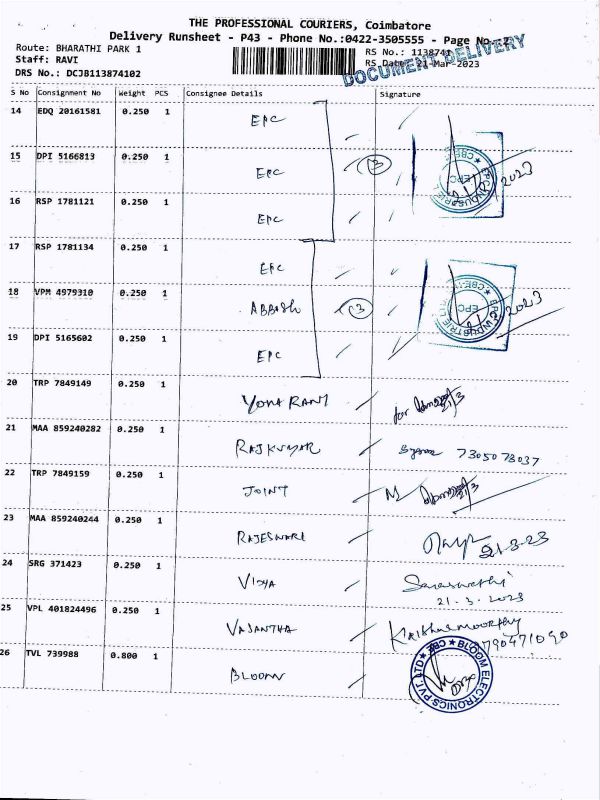 THE PROFESSIONAL COURIERS, Coimbatore
Delivery Runsheet - P43 - Phone No.:0422-3505555 - Page No. 2
Route: BHARATHI PARK 1
RS No.: 1138741
Staff: RAVI
RS Date: 21-Mar-2023
DRS No.: DCJB113874102
DOCUMENT DELIVERY
S No Consignment No Weight PCS Consignee Details Signature
14 EDQ 20161581 0.250 1 EPC
15 DPI 5166813 0.250 1 EPC 3 2023
16 RSP 1781121 0.250 1 EPC
17 RSP 1781134 0.250 1 EPC
18 VPM 4979310 0.250 1 ABBASH 3 2023
19 DPI 5165602 0.250 1 EPC
20 TRP 7849149 0.250 1 YONA RANI for
21 MAA 859240282 0.250 1 RAJKUMAR 7305073037
22 TRP 7849159 0.250 1 JOINT
23 MAA 859240244 0.250 1 RAJESWARI 21-3-23
24 SRG 371423 0.250 1 VIDYA Saraswathi
21.3.2023
25 VPL 401824496 0.250 1 VASANTHA Krishnamoorthy
9790471090
26 TVL 739988 0.800 1 BLOOM
BLOOM ELECTRONICS PVT. LTD ★ CBE ★